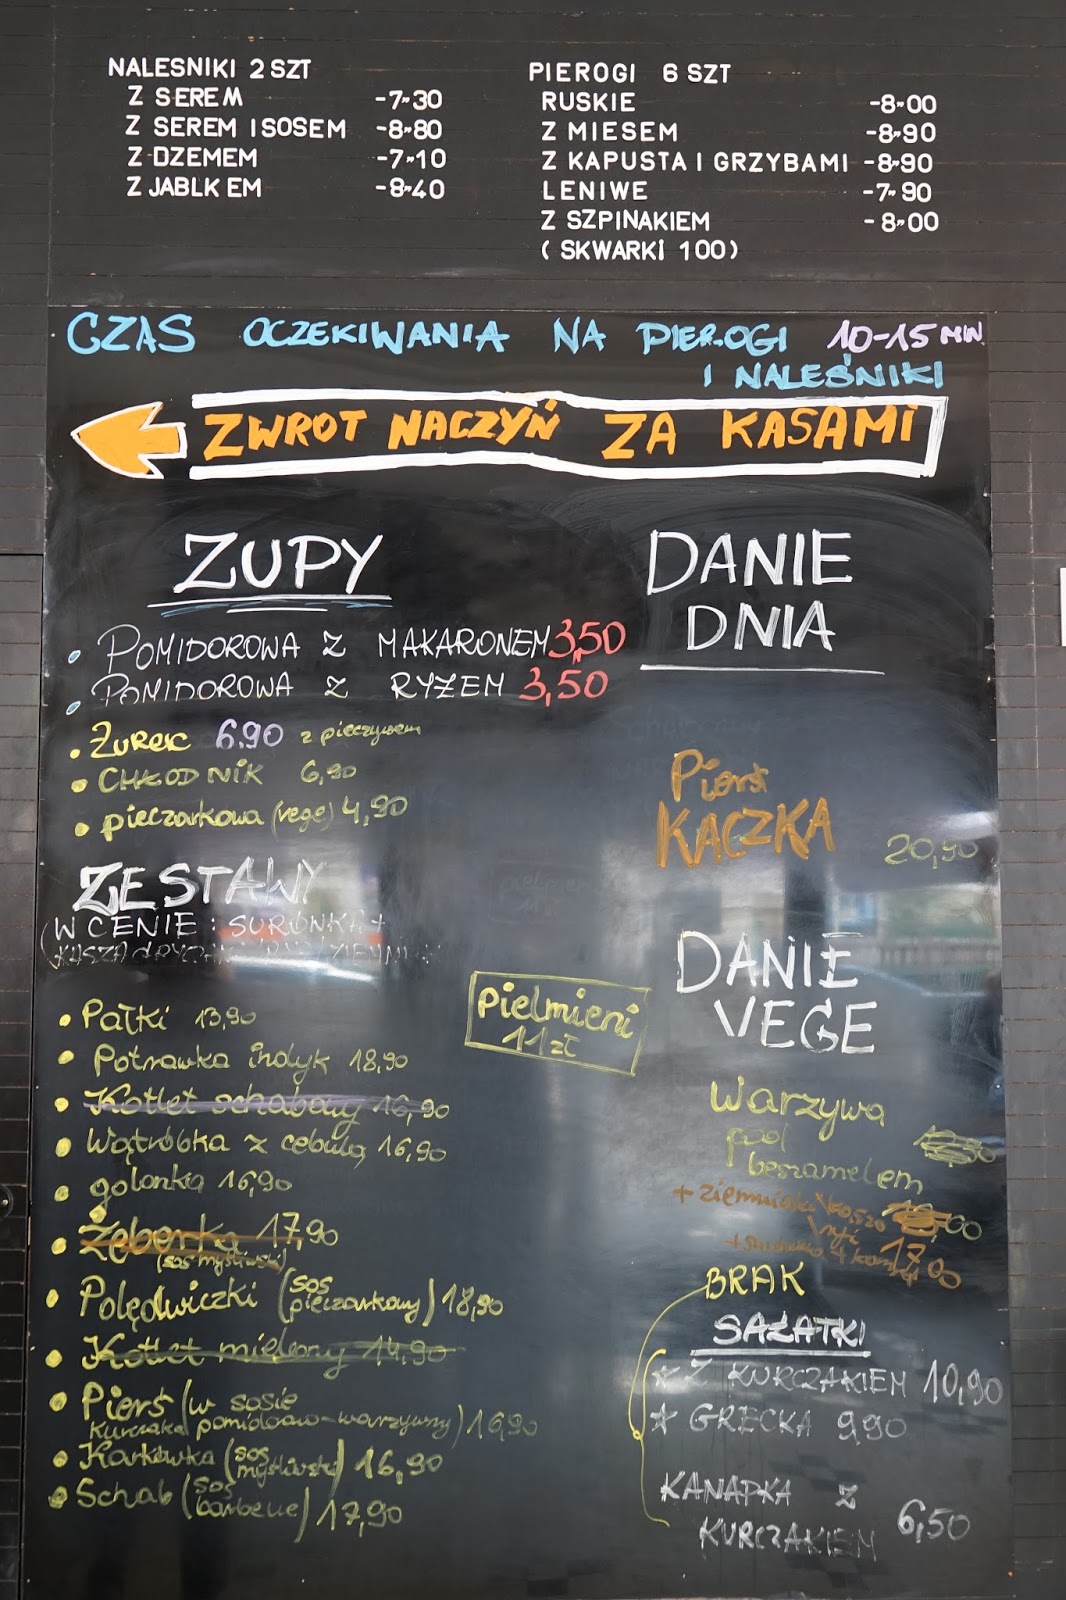 NALESNIKI 2 SZT
Z SEREM -7-30
Z SEREM I SOSEM -8-80
Z DZEMEM -7-10
Z JABLKEM -8-40
PIEROGI 6 SZT
RUSKIE -8-00
Z MIESEM -8-90
Z KAPUSTA I GRZYBAMI -8-90
LENIWE -7-90
Z SZPINAKIEM -8-00
(SKWARKI 100)
CZAS OCZEKIWANIA NA PIEROGI 10-15 MIN.
I NALEŚNIKI
ZWROT NACZYŃ ZA KASAMI
ZUPY
• POMIDOROWA Z MAKARONEM 3,50
• POMIDOROWA Z RYŻEM 3,50
• Żurek 6.90 z pieczywem
• CHŁODNIK 6,90
• pieczarkowa (vege) 4,90
ZESTAWY
(W CENIE: SURÓWKA +
KASZA
• Pałki 13,90
• Potrawka indyk 18,90
• Kotlet schabowy 16,90
• Wątróbka z cebulą 16,90
• golonka 16,90
• Żeberka 17,90
(sos myśliwski)
• Polędwiczki (sos pieczarkowy) 18,90
• Kotlet mielony 14,90
• Pierś (w sosie
kurczaka pomidorowo-warzywny) 16,90
• Karkówka (sos myśliwski) 16,90
• Schab (sos barbecue) 17,90
Pielmieni
11 zł
DANIE
DNIA
Pierś
KACZKA 20,90
DANIE
VEGE
Warzywa
pod
beszamelem
+ ziemniaki
17,00
BRAK
SAŁATKI
★ Z KURCZAKIEM 10,90
★ GRECKA 9,90
KANAPKA Z
KURCZAKIEM 6,50